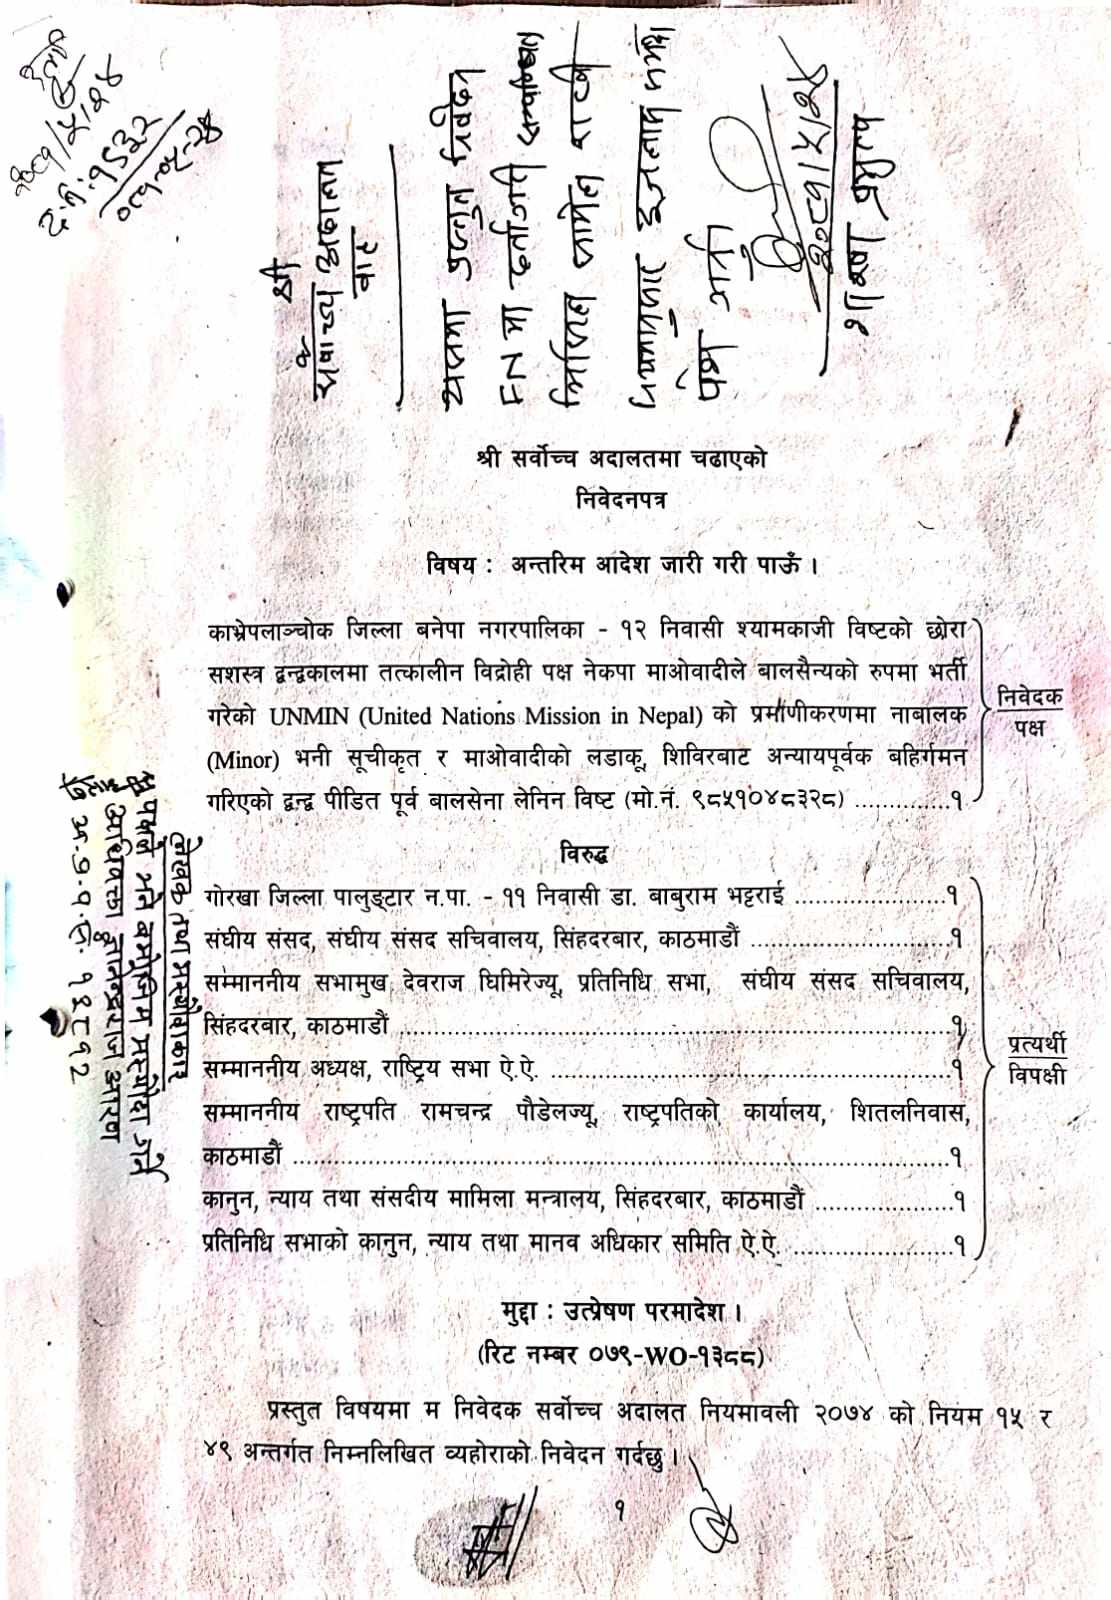 २०८१/५/२४
द.नं. १५३२
०८१-५-२४
श्री
सर्वोच्च अदालत
बार
यसमा प्रस्तुत निवेदन
FN मा दर्ता गरी सम्बन्धित
मिसिल सामेल राखी
नियमानुसार इजलास समक्ष
पेश गर्नु
२०८१/५/२४
श्री सर्वोच्च अदालतमा चढाएको
निवेदनपत्र
विषय : अन्तरिम आदेश जारी गरी पाऊँ ।
काभ्रेपलाञ्चोक जिल्ला बनेपा नगरपालिका - १२ निवासी श्यामकाजी विष्टको छोरा
सशस्त्र द्वन्द्वकालमा तत्कालीन विद्रोही पक्ष नेकपा माओवादीले बालसैन्यको रुपमा भर्ती
गरेको UNMIN (United Nations Mission in Nepal) को प्रमाणीकरणमा नाबालक
(Minor) भनी सूचीकृत र माओवादीको लडाकू शिविरबाट अन्यायपूर्वक बहिर्गमन
गरिएको द्वन्द्व पीडित पूर्व बालसेना लेनिन विष्ट (मो.नं. ९८५१०४८३२८) ..............१
निवेदक
पक्ष
विरुद्ध
गोरखा जिल्ला पालुङटार न.पा. - ११ निवासी डा. बाबुराम भट्टराई .......................१
संघीय संसद, संघीय संसद सचिवालय, सिंहदरबार, काठमाडौं ..............................१
सम्माननीय सभामुख देवराज घिमिरेज्यू, प्रतिनिधि सभा, संघीय संसद सचिवालय,
सिंहदरबार, काठमाडौं ...................................................................................१
सम्माननीय अध्यक्ष, राष्ट्रिय सभा ऐ.ऐ. ..............................................................१
सम्माननीय राष्ट्रपति रामचन्द्र पौडेलज्यू, राष्ट्रपतिको कार्यालय, शितलनिवास,
काठमाडौं ....................................................................................................१
कानुन, न्याय तथा संसदीय मामिला मन्त्रालय, सिंहदरबार, काठमाडौं .....................१
प्रतिनिधि सभाको कानुन, न्याय तथा मानव अधिकार समिति ऐ.ऐ. ........................१
प्रत्यर्थी
विपक्षी
लेखक तथा
अधिवक्ता ज्ञानेन्द्रराज आरण
मुद्दा : उत्प्रेषण परमादेश ।
(रिट नम्बर ०७९-WO-१३८८)
प्रस्तुत विषयमा म निवेदक सर्वोच्च अदालत नियमावली २०७४ को नियम १५ र
४९ अन्तर्गत निम्नलिखित व्यहोराको निवेदन गर्दछु ।
१